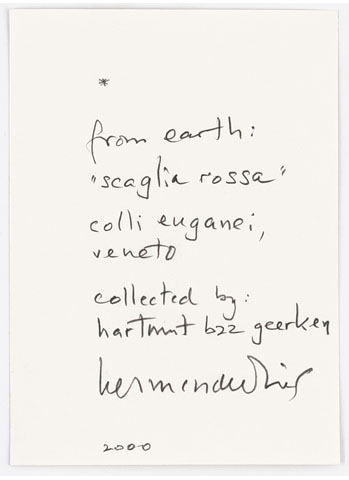 *
from earth:
"scaglia rossa"
colli euganei,
veneto
collected by:
hartmut bzz geerken
herman de vries
2000